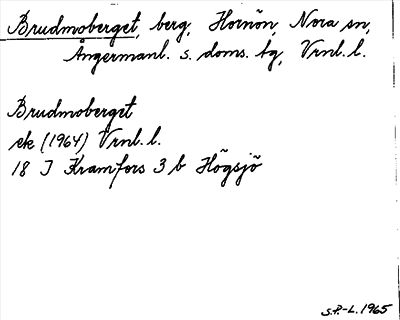 Brudmoberget, berg, Hornön, Nora sn,
Ångermanl. s. doms. tg, Vrnl. l.
Brudmoberget
ek (1964) Vrnl. l.
18 J Kramfors 3 b Högsjö
S.P.-L. 1965